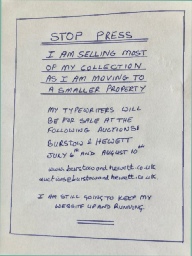 STOP PRESS
I AM SELLING MOST
OF MY COLLECTION
AS I AM MOVING TO
A SMALLER PROPERTY
MY TYPEWRITERS WILL
BE FOR SALE AT THE
FOLLOWING AUCTIONS:
BURSTOW & HEWETT
JULY 6TH AND AUGUST 10TH
www.burstowandhewett.co.uk
auctions@burstowandhewett.co.uk.
I AM STILL GOING TO KEEP MY
WEBSITE UP AND RUNNING.